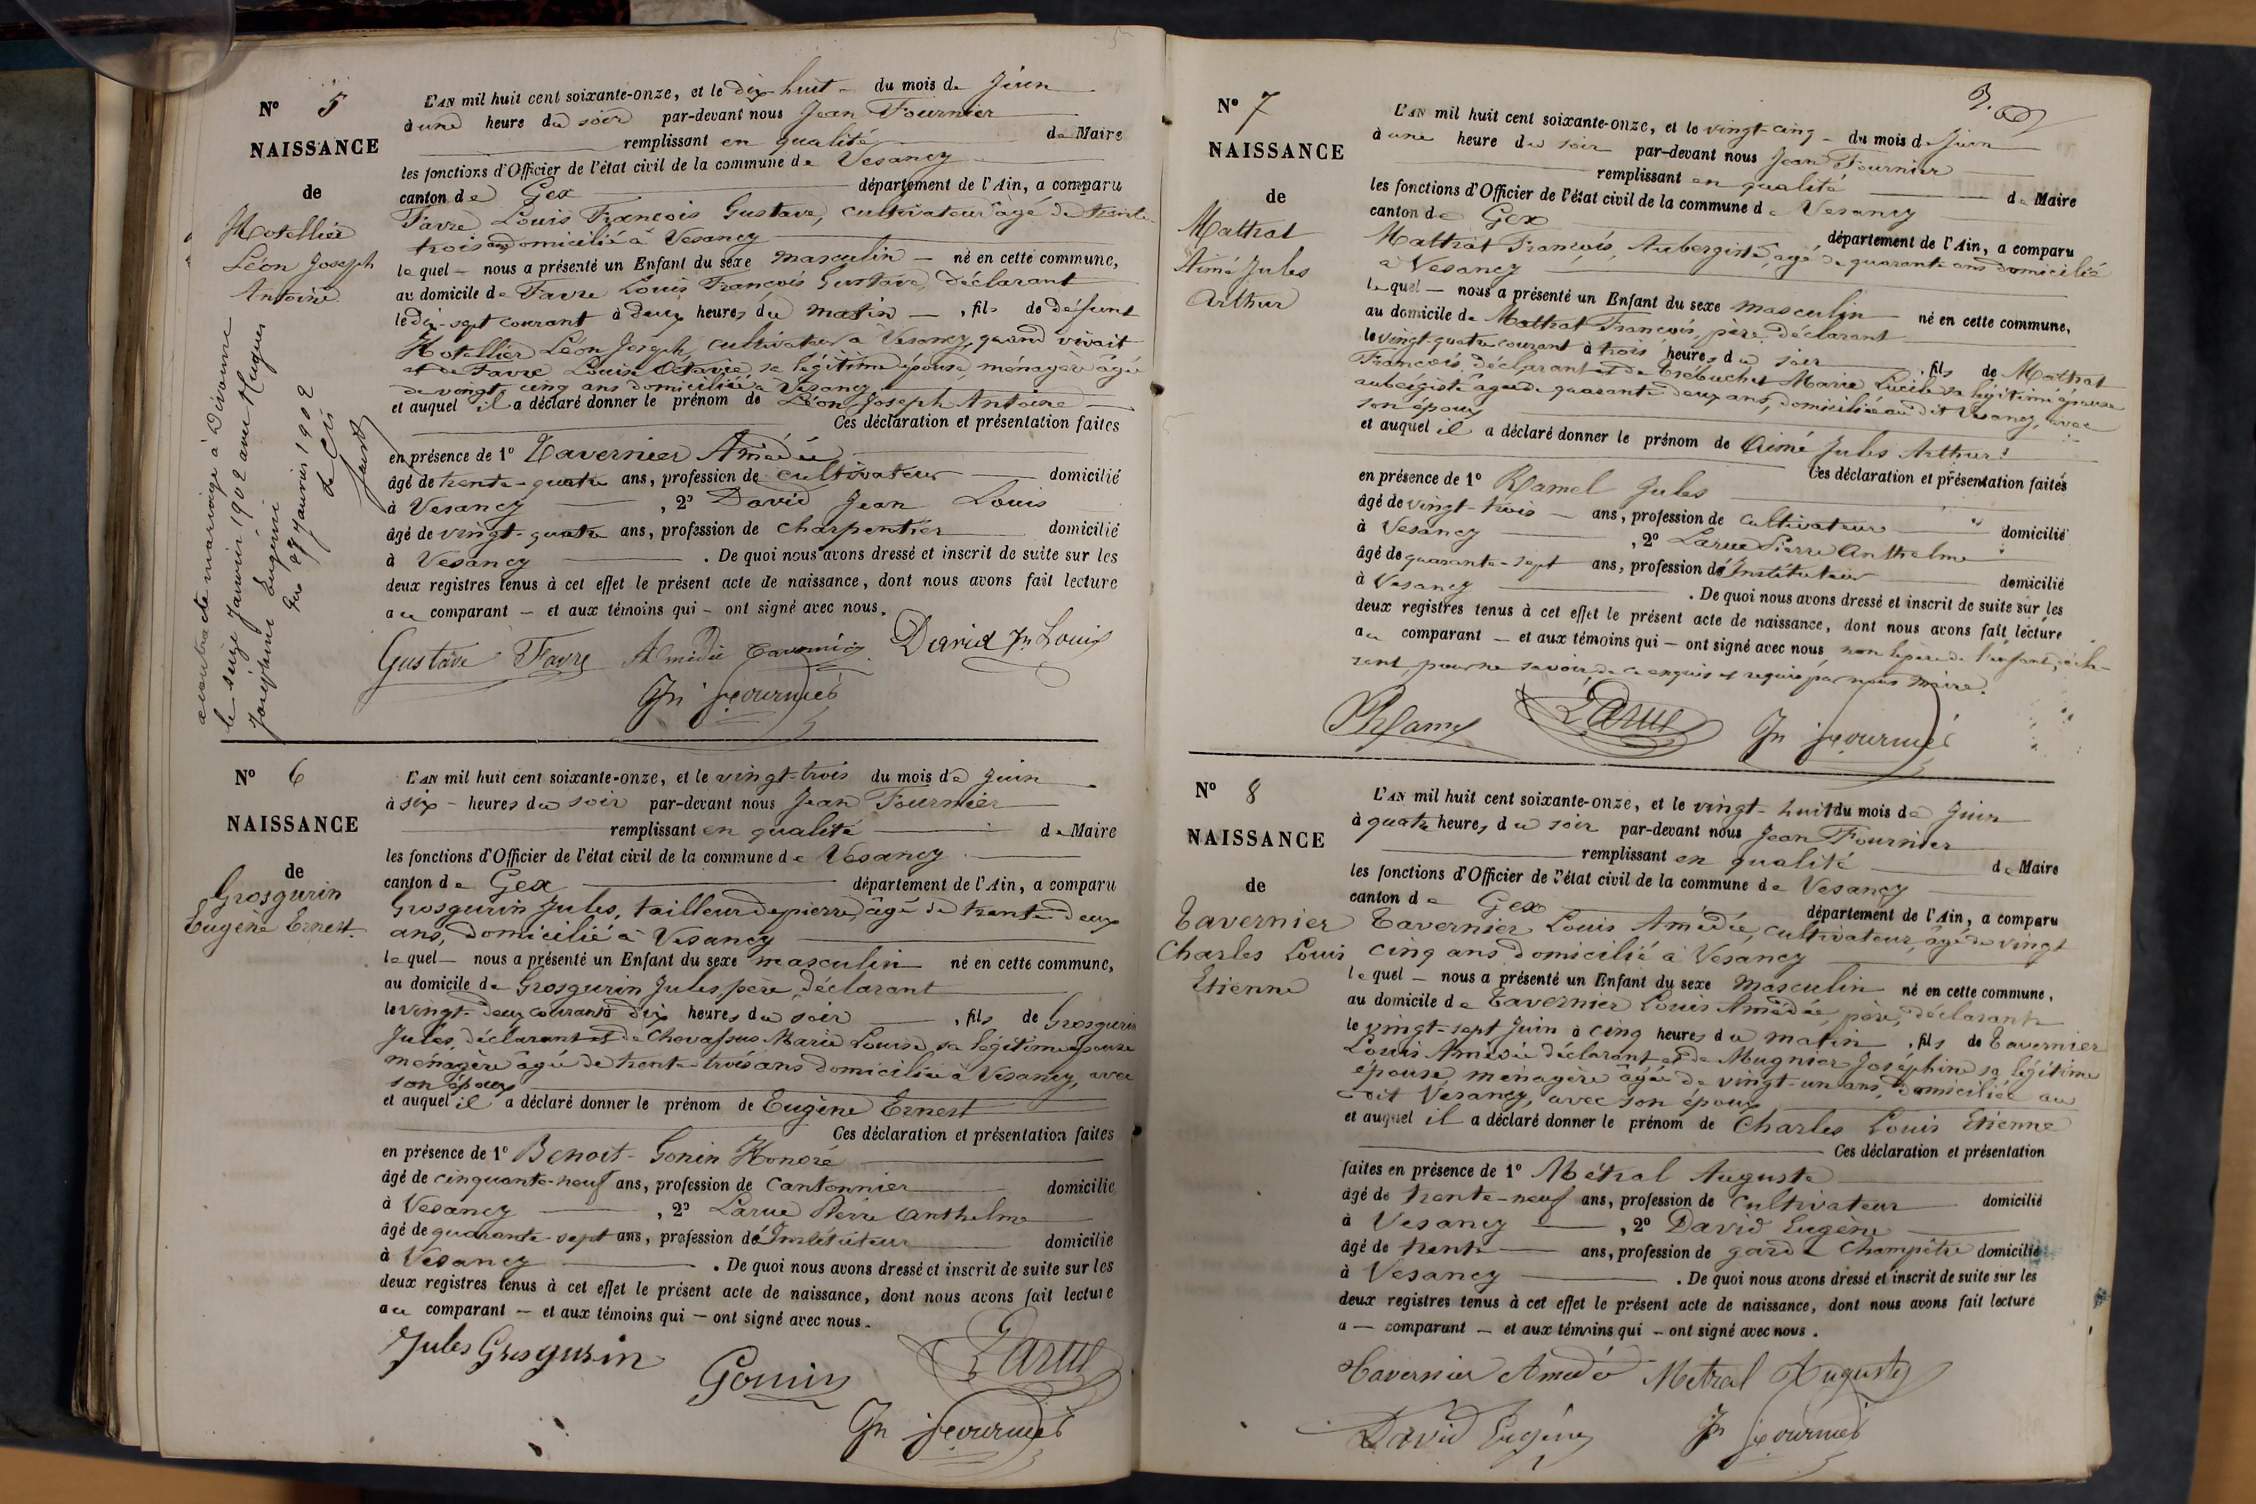 Nº 5
NAISSANCE
de
Hotellier
Léon Joseph
Antoine
a contracté mariage à Divonne
le seize janvier 1902 avec Hugues
Joséphine Eugénie
27 janvier 1902
L'AN mil huit cent soixante-onze, et le dix huit - du mois de Juin
à une heure du soir par-devant nous Jean Fournier
remplissant en qualité de Maire
les fonctions d'Officier de l'état civil de la commune de Vesancy
canton de Gex département de l'Ain, a comparu
Favre Louis François Gustave, cultivateur âgé de trente
trois ans domicilié à Vesancy
lequel — nous a présenté un Enfant du sexe masculin — né en cette commune,
au domicile de Favre Louis François Gustave, déclarant
le dix-sept courant à deux heures du matin —, fils de défunt
Hotellier Léon Joseph, cultivateur à Vesancy, quand vivait
et de Favre Louise Octavie, sa légitime épouse, ménagère âgée
de vingt cinq ans domiciliée à Vesancy
et auquel il a déclaré donner le prénom de Léon Joseph Antoine
Ces déclaration et présentation faites
en présence de 1º Tavernier Amédée
âgé de trente-quatre ans, profession de cultivateur domicilié
à Vesancy, 2º David Jean Louis
âgé de vingt-quatre ans, profession de charpentier domicilié
à Vesancy. De quoi nous avons dressé et inscrit de suite sur les
deux registres tenus à cet effet le présent acte de naissance, dont nous avons fait lecture
au comparant — et aux témoins qui — ont signé avec nous.
Gustave Favre Amédée Tavernier David Jn Louis
Jn Fournier
Nº 6
NAISSANCE
de
Grosgurin
Eugène Ernest.
L'AN mil huit cent soixante-onze, et le vingt-trois du mois de Juin
à six - heures du soir par-devant nous Jean Fournier
remplissant en qualité de Maire
les fonctions d'Officier de l'état civil de la commune de Vesancy
canton de Gex département de l'Ain, a comparu
Grosgurin Jules, tailleur de pierre, âgé de trente deux
ans, domicilié à Vesancy
lequel — nous a présenté un Enfant du sexe masculin né en cette commune,
au domicile de Grosgurin Jules, père, déclarant
le vingt-deux courant à dix heures du soir, fils de Grosgurin
Jules, déclarant et de Chavassus Marie Louise, sa légitime épouse
ménagère âgée de trente-trois ans domiciliée à Vesancy, avec
son époux
et auquel il a déclaré donner le prénom de Eugène Ernest
Ces déclaration et présentation faites
en présence de 1º Benoit-Gonin Honoré
âgé de cinquante-neuf ans, profession de cantonnier domicilié
à Vesancy, 2º Larue Pierre Anthelme
âgé de quarante-sept ans, profession d'Instituteur domicilié
à Vesancy. De quoi nous avons dressé et inscrit de suite sur les
deux registres tenus à cet effet le présent acte de naissance, dont nous avons fait lecture
au comparant — et aux témoins qui — ont signé avec nous.
Jules Grosgurin Gonin Larue
Jn Fournier
Nº 7
NAISSANCE
de
Mathat
Aimé Jules
Arthur
L'AN mil huit cent soixante-onze, et le vingt-cinq - du mois de Juin
à une heure du soir par-devant nous Jean Fournier
remplissant en qualité de Maire
les fonctions d'Officier de l'état civil de la commune de Vesancy
canton de Gex département de l'Ain, a comparu
Mathat François, Aubergiste, âgé de quarante ans domicilié
à Vesancy
lequel — nous a présenté un Enfant du sexe masculin né en cette commune,
au domicile de Mathat François, père, déclarant
le vingt-quatre courant à trois heures du soir, fils de Mathat
François, déclarant et de Trébuchet Marie Lucie sa légitime épouse
aubergiste âgée de quarante deux ans, domiciliée au dit Vesancy, avec
son époux
et auquel il a déclaré donner le prénom de Aimé Jules Arthur
Ces déclaration et présentation faites
en présence de 1º Ramel Jules
âgé de vingt-trois — ans, profession de cultivateur domicilié
à Vesancy, 2º Larue Pierre Anthelme
âgé de quarante-sept ans, profession d'Instituteur domicilié
à Vesancy. De quoi nous avons dressé et inscrit de suite sur les
deux registres tenus à cet effet le présent acte de naissance, dont nous avons fait lecture
au comparant — et aux témoins qui — ont signé avec nous, non le père de l'enfant, décla-
rant, pour ne savoir, de ce enquis et requis par nous Maire.
Ramel Larue Jn Fournier
Nº 8
NAISSANCE
de
Tavernier
Charles Louis
Etienne
L'AN mil huit cent soixante-onze, et le vingt-huit du mois de Juin
à quatre heures du soir par-devant nous Jean Fournier
remplissant en qualité de Maire
les fonctions d'Officier de l'état civil de la commune de Vesancy
canton de Gex département de l'Ain, a comparu
Tavernier Louis Amédée, cultivateur, âgé de vingt
cinq ans domicilié à Vesancy
lequel — nous a présenté un Enfant du sexe masculin né en cette commune,
au domicile de Tavernier Louis Amédée, père, déclarant
le vingt-sept Juin à cinq heures du matin, fils de Tavernier
Louis Amédée déclarant et de Mugnier Joséphine sa légitime
épouse, ménagère âgée de vingt-un ans, domiciliée au
dit Vesancy, avec son époux
et auquel il a déclaré donner le prénom de Charles Louis Etienne
Ces déclaration et présentation
faites en présence de 1º Métral Auguste
âgé de trente-neuf ans, profession de cultivateur domicilié
à Vesancy, 2º David Eugène
âgé de trente — ans, profession de garde Champêtre domicilié
à Vesancy. De quoi nous avons dressé et inscrit de suite sur les
deux registres tenus à cet effet le présent acte de naissance, dont nous avons fait lecture
a — comparant — et aux témoins qui — ont signé avec nous.
Tavernier Amédée Metral Auguste
David Eugène Jn Fournier